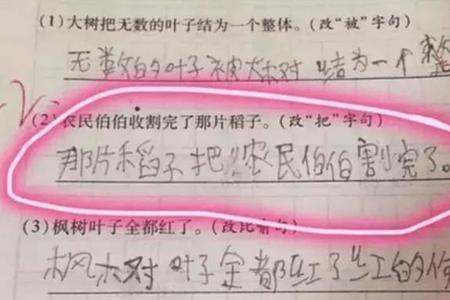 (1)大树把无数的叶子结为一个整体。(改“被”字句)
无数的叶子被大树结为一个
(2)农民伯伯收割完了那片稻子。(改“把”字句)
那片稻子把农民伯伯割完了。
(3)枫树叶子全都红了。(改比喻句)
枫树叶子全都红了红的像